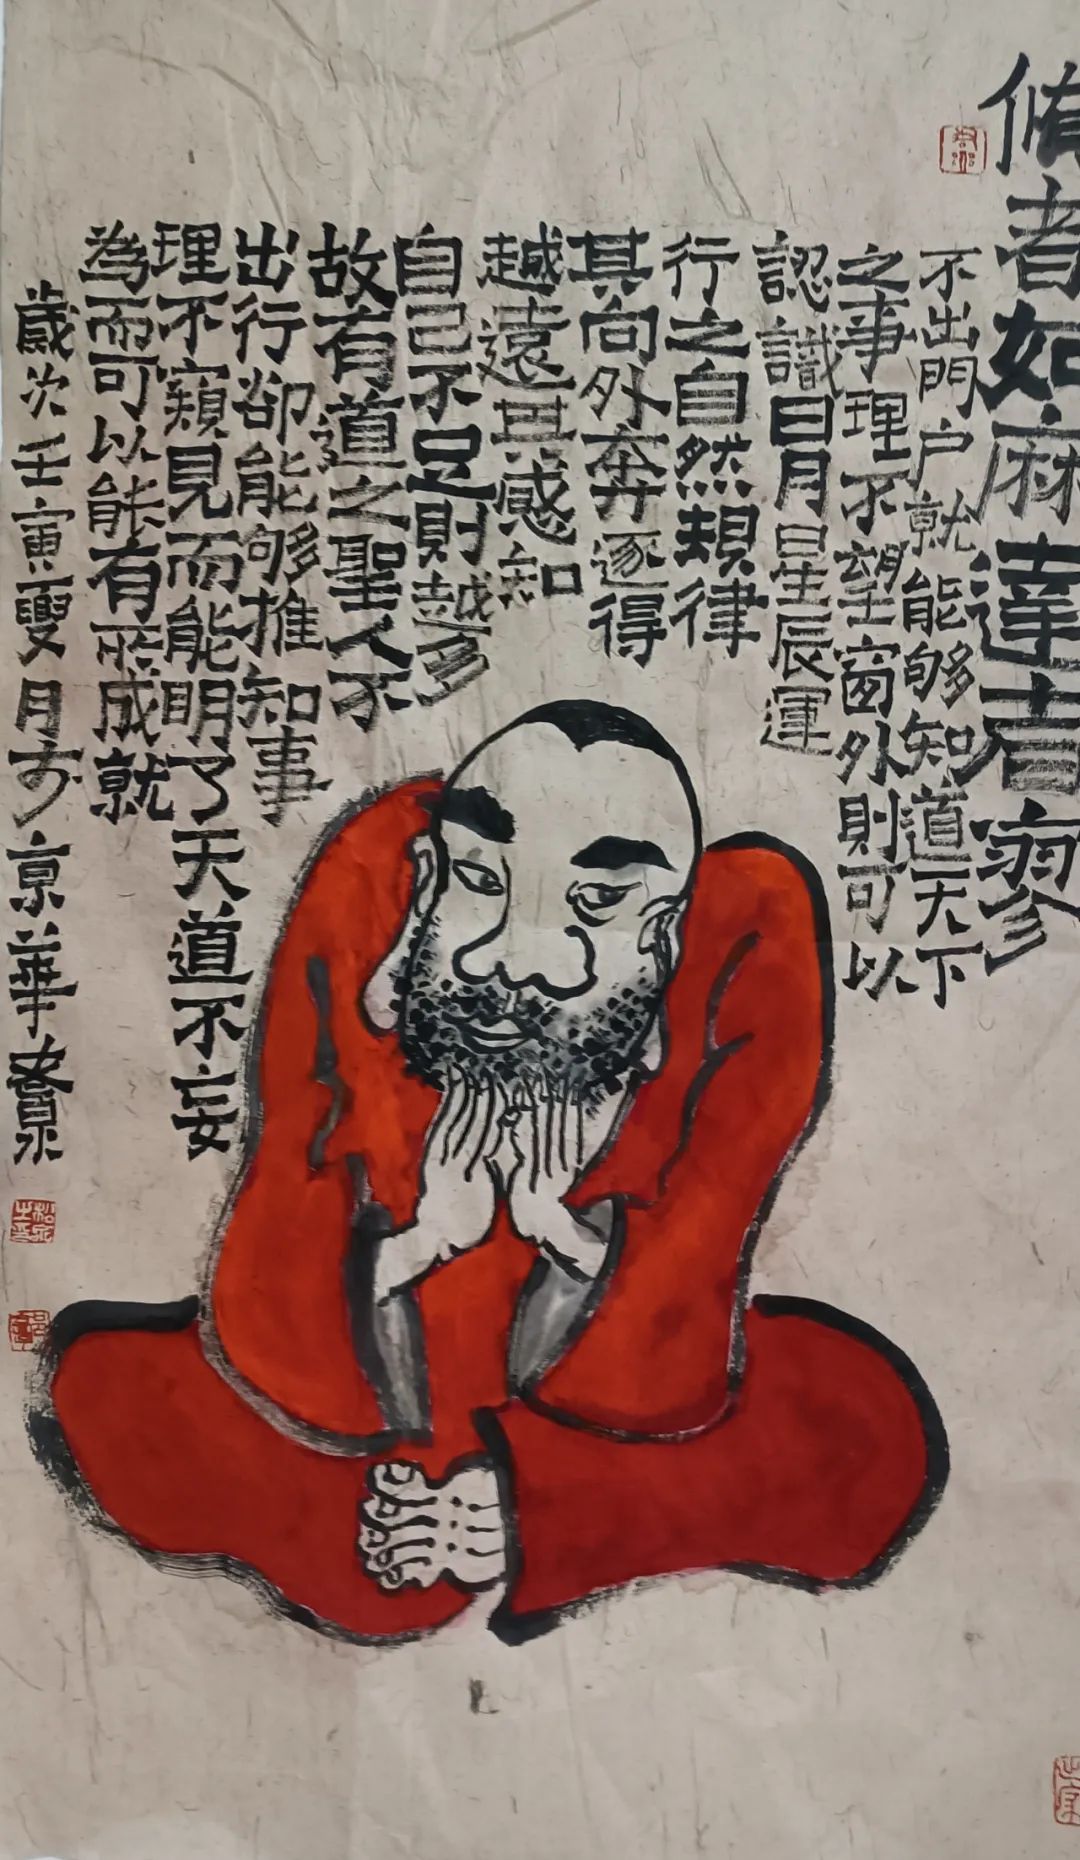 脩者如麻達者寥
不出門户就能够知道天下
之事理不望窗外則可以
認識日月星辰運
行之自然規律
其向外奔逐得
越遠其感知
自己不足則越多
故有道之聖人不
出行卻能够推知事
理不窺見而能明了天道不妄
為而可以能有所成就
歲次壬寅夏月於京華